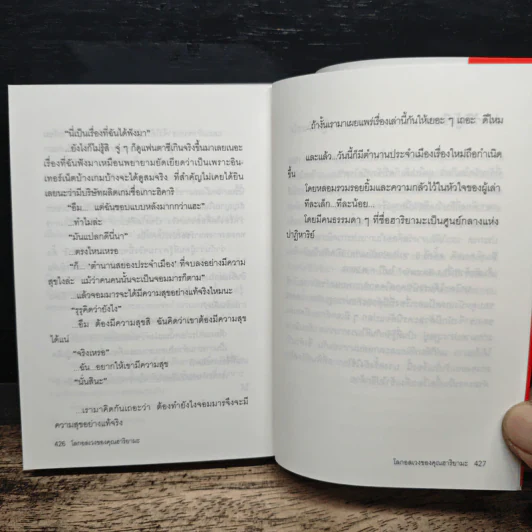 "นี่เป็นเรื่องที่ฉันได้ฟังมา"
...ยังไงก็ไม่รู้สิ จู่ ๆ ก็ดูแฟนตาซีเกินจริงขึ้นมาเลยเนอะ
เรื่องที่ฉันฟังมาเหมือนพยายามยัดเยียดว่าเป็นเพราะอิน-
เทอร์เน็ตบ้างเกมบ้างจะได้ดูสมจริง ที่สำคัญไม่เคยได้ยิน
เลยนะว่ามีบริษัทผลิตเกมชื่อเกาะอิคาริ
"อืม... แต่ฉันชอบแบบหลังมากกว่าแฮะ"
...ทำไมล่ะ
"มันแปลกดีนี่นา"
...ตรงไหนเหรอ
"ก็...'ตำนานสยองประจำเมือง' ที่จบลงอย่างมีความ
สุขไงล่ะ แม้ว่าคนคนนั้นจะเป็นจอมมารก็ตาม"
...แล้วจอมมารจะได้มีความสุขอย่างแท้จริงไหมนะ
"รุรุคิดว่ายังไง"
...อืม ต้องมีความสุขสิ ฉันคิดว่าเขาต้องมีความสุข
ได้แน่
"จริงเหรอ"
...อัน...อยากให้เขามีความสุข
"นั่นสินะ"
...เรามาคิดกันเถอะว่า ต้องทำยังไงจอมมารจึงจะมี
ความสุขอย่างแท้จริง
426 โลกอลเวงของคุณฮาริยามะ
...ถ้างั้นเรามาเผยแพร่เรื่องเล่านี้กันให้เยอะ ๆ เถอะ ดีไหม
และแล้ว...วันนี้ก็มีตำนานประจำเมืองเรื่องใหม่ถือกำเนิด
ขึ้น
โดยหลอมรวมรอยยิ้มและความกลัวไว้ในหัวใจของผู้เล่า
ทีละเล็ก...ทีละน้อย...
โดยมีคนธรรมดา ๆ ที่ชื่อฮาริยามะเป็นศูนย์กลางแห่ง
ปาฏิหาริย์
โลกอลเวงของคุณฮาริยามะ 427